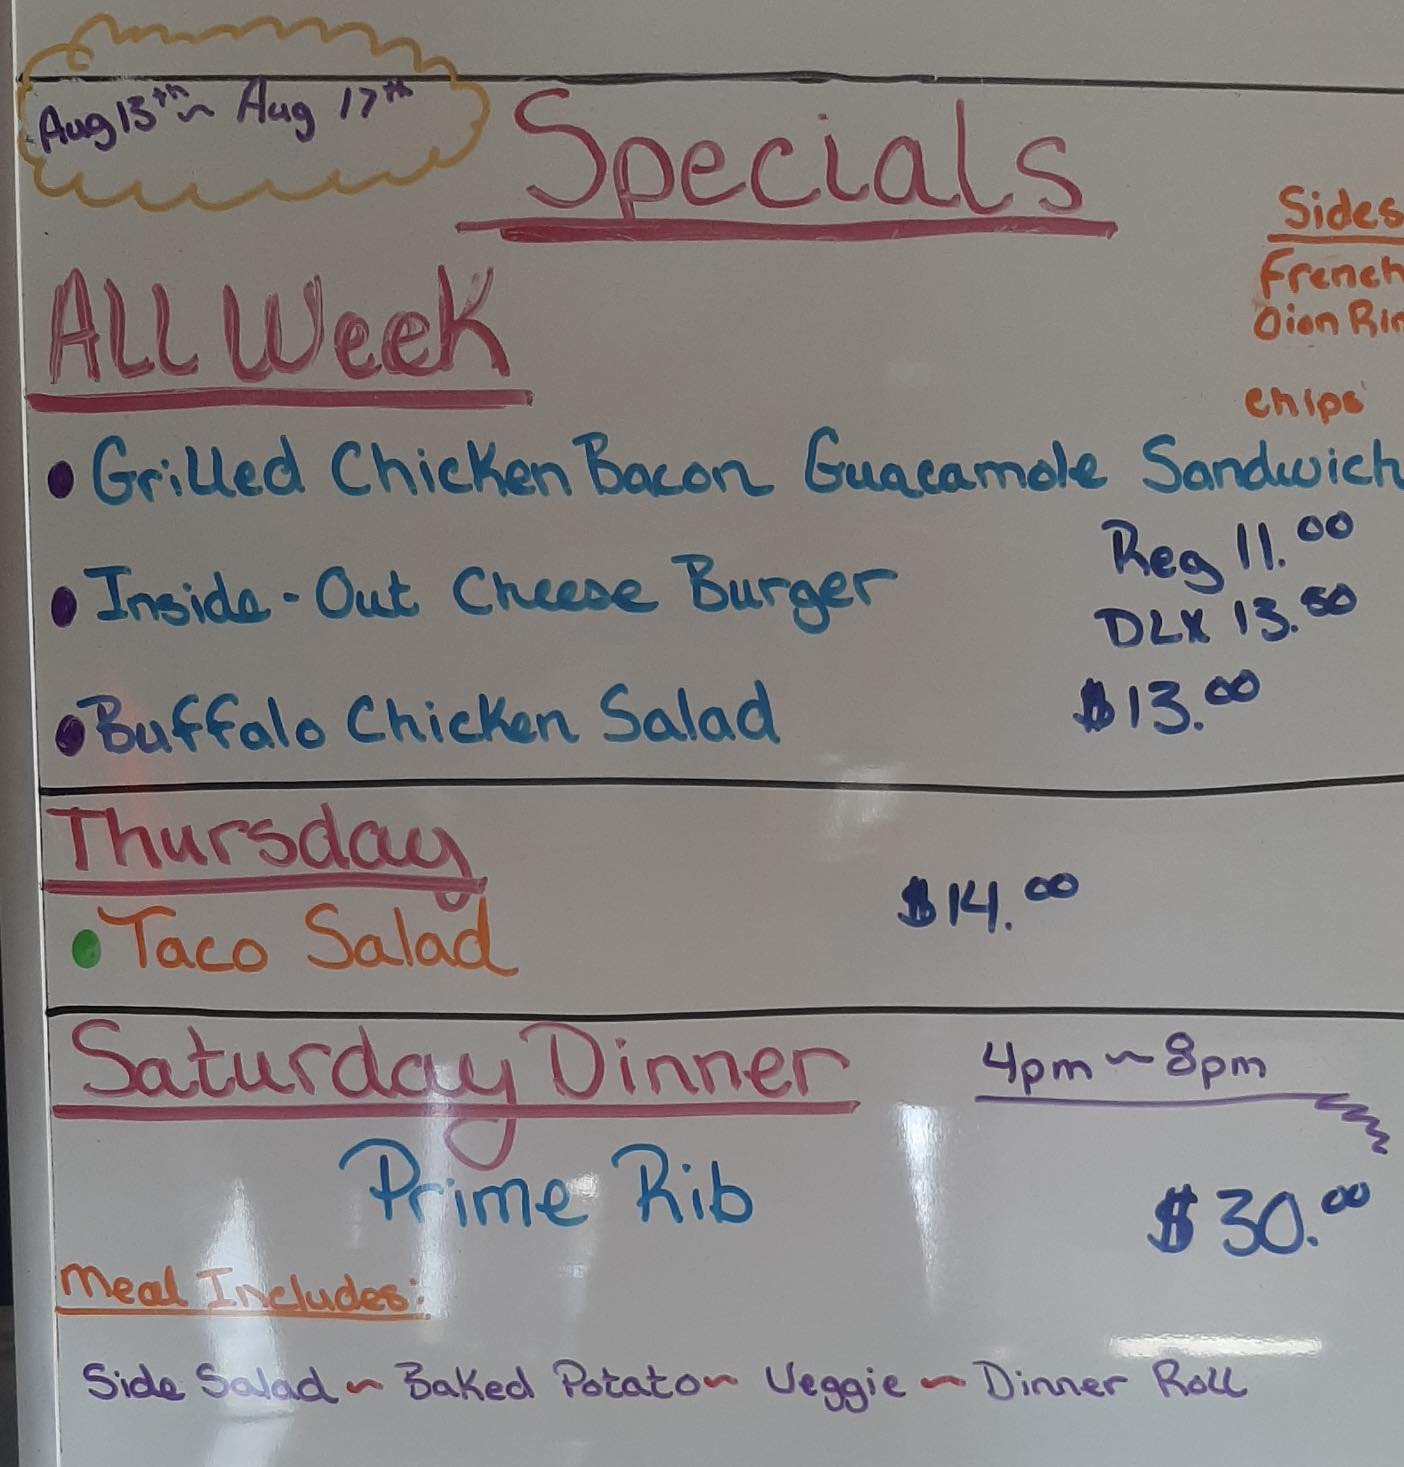 Aug 13th ~ Aug 17th
Specials
Sides
French
Oion Rin
Chips
ALL Week
Grilled Chicken Bacon Guacamole Sandwich
Inside-Out Cheese Burger
Reg 11.00
DLX 13.50
Buffalo Chicken Salad $13.00
Thursday
Taco Salad $14.00
Saturday Dinner 4pm ~ 8pm
Prime Rib $30.00
Meal Includes:
Side Salad ~ Baked Potato ~ Veggie ~ Dinner Roll